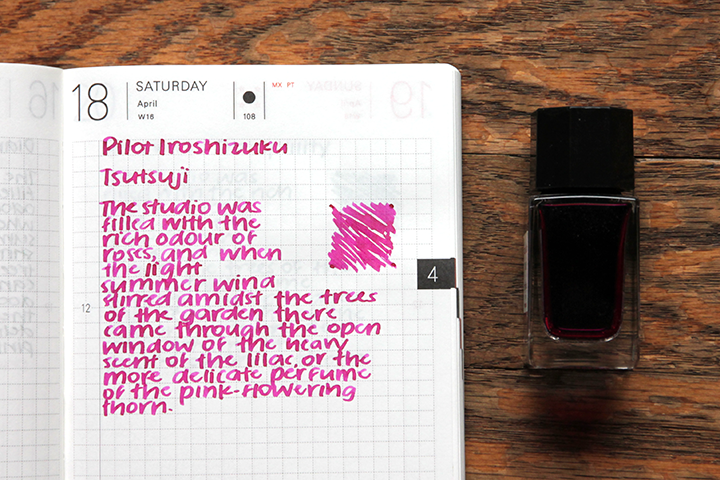 18
SATURDAY
April
W16
108
MX PT
Pilot Iroshizuku
Tsutsuji
The studio was
filled with the
rich odour of
roses, and when
the light
summer wind
stirred amidst the trees
of the garden there
came through the open
window of the heavy
scent of the lilac, or the
more delicate perfume
of the pink-flowering
thorn.
12
4